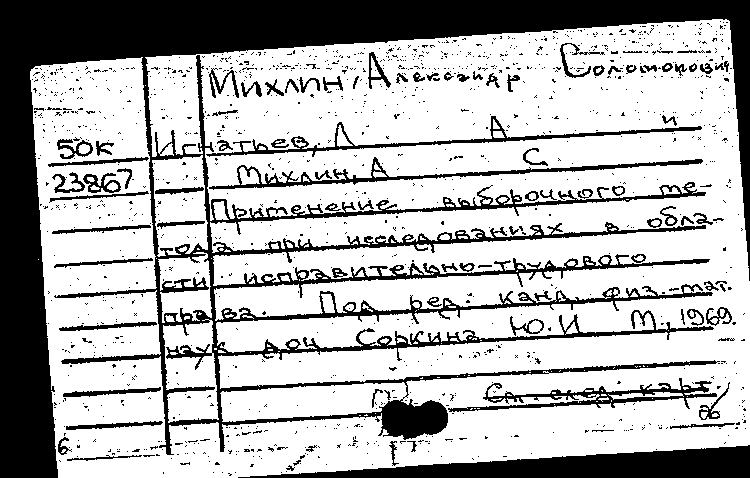 Михлин, Александр Соломонович
50к Игнатьев, Л А и
23867 Михлин, А С
Применение выборочного ме-
тода при исследованиях в обла-
сти исправительно-трудового
права. Под ред. канд. физ.-мат.
наук доц Соркина Ю.И М., 1969.
См. след. карт.
86
6